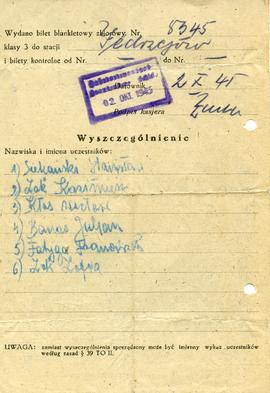 Wydano bilet blankietowy zbiorowy Nr. 5345
klasy 3 do stacji Jędrzejów
i bilety kontrolne od Nr. do Nr.
2 X 45
02. OKT. 1945
Datownik
Podpis kasjera
Wyszczególnienie
Nazwiska i imiona uczestników:
1) Stanisław
2) Żak Kazimierz
3) Kłos
4) Banaś Julian
5) Fatyga Franciszek
6) Żak Zofia
UWAGA: zamiast wyszczególnienia sporządzony może być imienny wykaz uczestników
według zasad § 39 TO II.